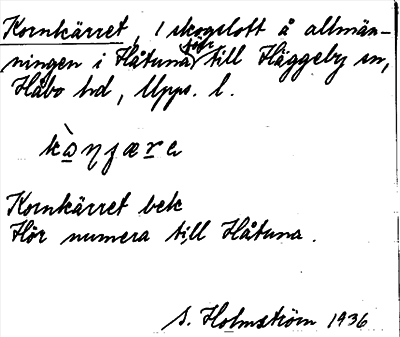 Kornkärret, 1 skogslott å allmän-
ningen i Håtuna förr till Häggeby sn,
Håbo hd, Upps. l.
Kornkärret bek
Hör numera till Håtuna.
S. Holmström 1936